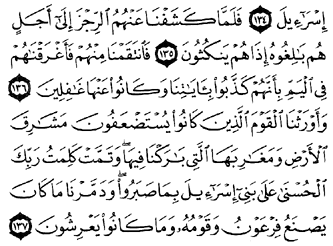 إِسْرَٰٓءِيلَ ١٣٤ فَلَمَّا كَشَفْنَا عَنْهُمُ ٱلرِّجْزَ إِلَىٰٓ أَجَلٍ
هُم بَٰلِغُوهُ إِذَا هُمْ يَنكُثُونَ ١٣٥ فَٱنتَقَمْنَا مِنْهُمْ فَأَغْرَقْنَٰهُمْ
فِى ٱلْيَمِّ بِأَنَّهُمْ كَذَّبُوا۟ بِـَٔايَٰتِنَا وَكَانُوا۟ عَنْهَا غَٰفِلِينَ ١٣٦
وَأَوْرَثْنَا ٱلْقَوْمَ ٱلَّذِينَ كَانُوا۟ يُسْتَضْعَفُونَ مَشَٰرِقَ
ٱلْأَرْضِ وَمَغَٰرِبَهَا ٱلَّتِى بَٰرَكْنَا فِيهَا ۖ وَتَمَّتْ كَلِمَتُ رَبِّكَ
ٱلْحُسْنَىٰ عَلَىٰ بَنِىٓ إِسْرَٰٓءِيلَ بِمَا صَبَرُوا۟ ۖ وَدَمَّرْنَا مَا كَانَ
يَصْنَعُ فِرْعَوْنُ وَقَوْمُهُۥ وَمَا كَانُوا۟ يَعْرِشُونَ ١٣٧